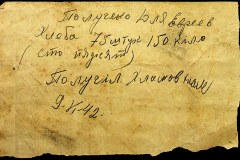 Получено для евреев
Хлеба 75 штук 150 кило
(сто пядсят)
Получил
9-X-42.